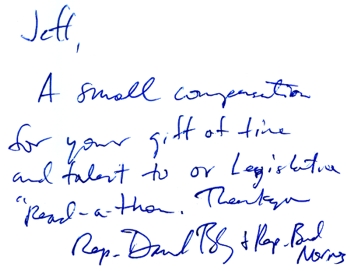 Jeff,
A small compensation
for your gift of time
and talent to or Legislative
"Read-a-thon. Thankyou
Rep. David & Rep. Bud